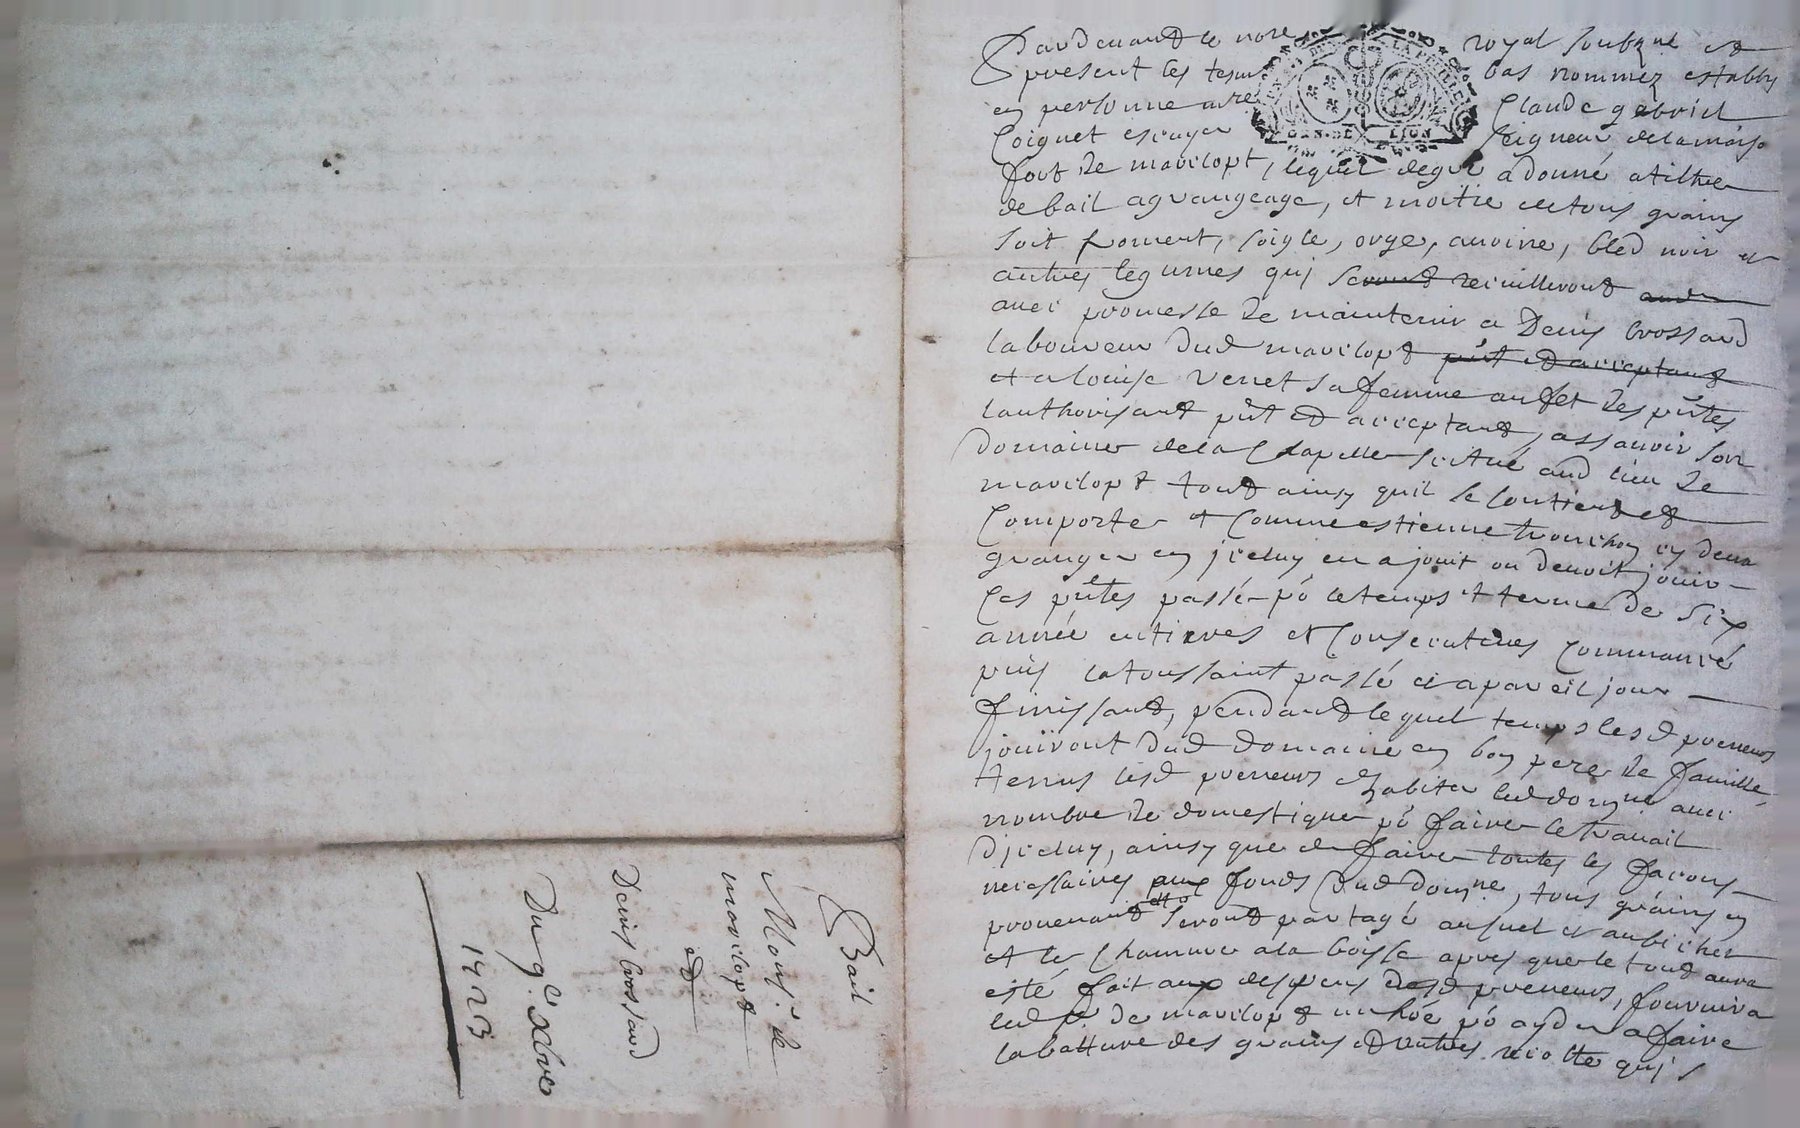 Pardevant le nore royal soubzne et
present les tesm bas nommez establly
en personne mre Claude gabriel
Coignet escuyer Seigneur delamaiso
fort de marclopt, lequel degré a donné atiltre
de bail agrangeage, et moitié detous grains
soit froment, soigle, orge, auoine, bled noir et
autres legumes quj seront recuilleront aud
auec promesse de maintenir a Denis Crossard
laboureur dud marclopt pnt et acceptant
et a louise Verret sa femme au fet des pntes
lauthorisant pnt et acceptant, assauoir son
domaine dela Chapelle scitué aud lieu de
marclopt tout ainsy quil se contient et
Comporte et Comme estienne tronchon cy deua
granger en jceluy en a jouit ou deuoit jouir
Les pntes passé pō le temps et terme de six
année entieres et Consecutiues Commancé
puis latoussaint passé et apareil jour
finissant, pendant lequel temps lesd preneurs
jouiront dud domaine en bon pere de famille
tenus lesd preneurs dhabiter led domne auec
nombre de domestique pō faire le trauail
djceluy, ainsy que de faire toutes les facons
necessaires aux fonds dud domne, tous grains en
prouenant seront partagé ausuel et aubichet
et le Chanure ala boisse apres que le tout aura
esté fait aux despens desd preneurs, fournira
led sr de marclopt un hōe pō ayder a faire
labatture des grains et autres recolte quj s
Bail
Monsr. de
marclopt
et
Denis Crossard
Du 9e. Xbre
1723
GEN. DE LION